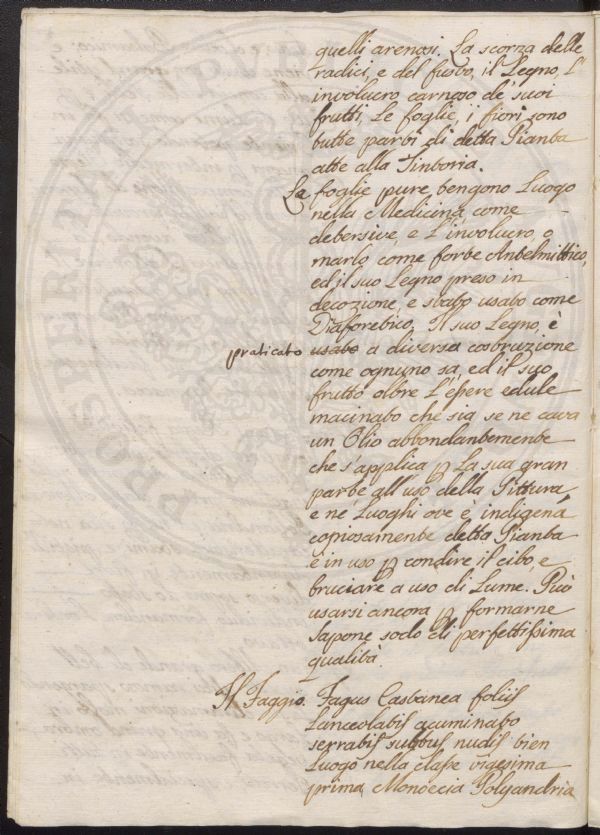 quelli arenosi. La scorza delle
radici, e del fusto, il Legno, L'
involucro carnoso de' suoi
frutti, Le foglie, i fiori sono
tutte parti di detta Pianta
atte alla Tintoria.
Le foglie pure, tengono Luogo
nella Medicina, come
detersive, e L'involucro, o
marlo come forte Antelmittico,
ed il suo Legno preso in
decozione, e stato usato come
Diaforetico. Il suo Legno, è
praticato usato a diversa costruzione
come ognuno sa, ed il suo
frutto oltre L'essere edule
macinato che sia, se ne cava
un Olio abbondantemente
che s'applica p La sua gran
parte, all'uso della Pittura,
e ne' Luoghi ove è indigena
copiosamente detta Pianta
è in uso p condire il cibo, e
bruciare a uso di Lume. Può
usarsi ancora p formarne
Sapone sodo di perfettissima
qualità.
Il Faggio. Fagus Castanea foliis
Lanceolatis acuminato
serratis subtus nudis tien
Luogo nella classe vigesima
prima, Monoecia Polyandria
PROSPERITATI PUBLICAE